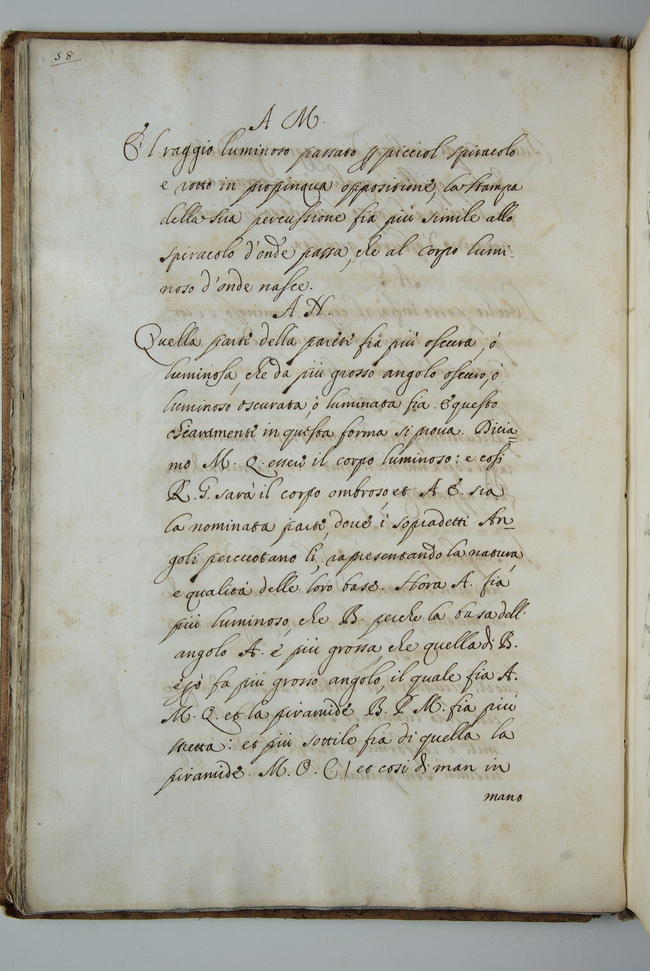 58
A M.
Il raggio luminoso passato p picciol spiracolo
e rotto in propinqua oppositione, la stampa
della sua percussione fia più simile allo
spiracolo d'onde passa, che al corpo lumi-
noso d'onde nasce.
A N.
Quella parte della parete fia più oscura, ò
luminosa, che da più grosso angolo oscuro, ò
luminoso oscurata, ò luminata fia. e questo
chiaramente in questa forma si prova. Dicia=
mo M. Q. essere il corpo luminoso: e cosi
R. G. sarà il corpo ombroso, et A E. sia
la nominata parte, dove i sopradetti An=
goli percuotano li, rapresentando la natura
e qualità delle loro base. Hora A. fia
più luminoso, che B. perche la basa dell'
angolo A. è più grossa che quella di B.
e però fa più grosso angolo, il quale fia A.
M. Q. et la piramide B. P M. fia più
stretta: et più sottile fia di quella la
piramide. M. O. C / et cosi di man in
mano